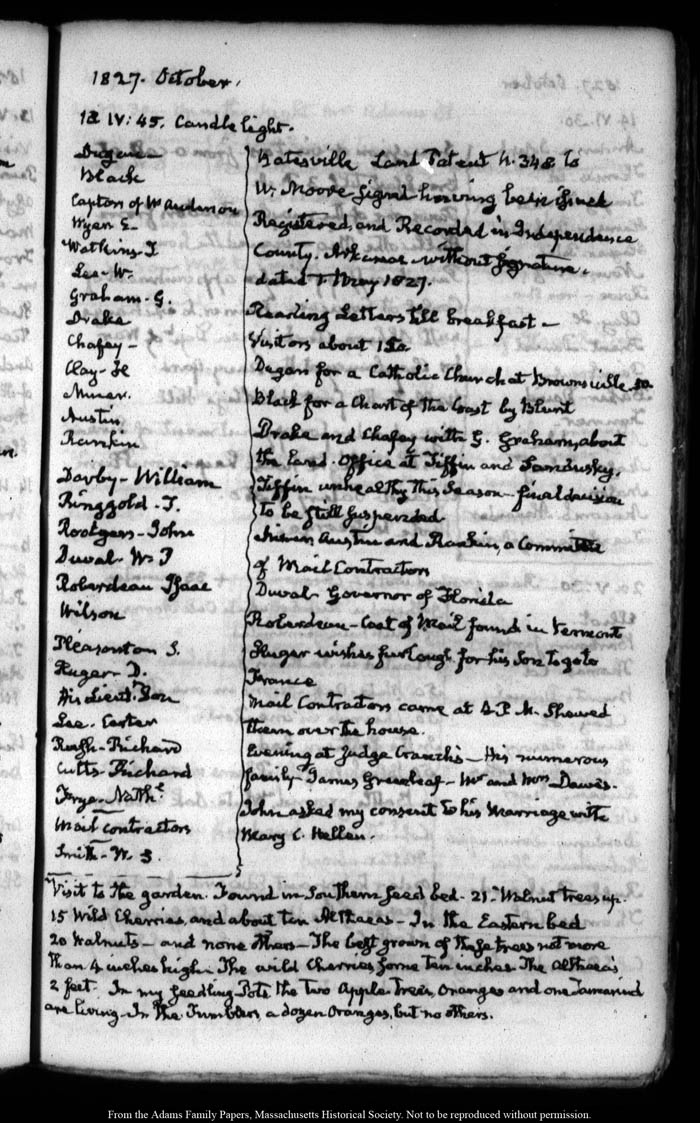 1827. October.
12. IV: 45. Candle light.
Dugan
Black
Capton of Wm Anderson
Wyer E.
Watkins T
Lee W.
Graham. G.
Drake
Chafey
Clay. He
Miner.
Austin
Rankin
Darby - William
Ringgold. T.
Rodgers - John
Duval. W. P
Roberdeau Isaac
Wilson
Pleasonton S.
Huger D.
His Lieut. Son
Lee. Custer
Rush - Richard
Cutts Richard
Frye. Nathl.
Mail Contractors
Smith - W. S.
Batesville Land Patent N. 348 to
W. Moore signed having been
Registered, and Recorded in Independence
County. Arkansas without signature.
dated 1. May 1827.
Reading Letters till breakfast —
Visitors about 12
Dugan for a Catholic Church at Brownsville
Black for a Chart of the Coast by Blunt
Drake and Chafey with G. Graham, about
the Land. Office at Tiffin and Sandusky.
Tiffin unhealthy this Season - final decision
to be still suspended
Miner, Austin and Rankin, a Committee
of Mail Contractors
Duval. Governor of Florida
Roberdeau - Coat of Mail found in Vermont
Huger wishes furlough for his Son to go to
France
Mail Contractors came at P. M. Shewed
them over the house.
Evening at Judge Cranch's - His numerous
family James Greenleaf - Mr and Mrs Dawes.
John asked my consent to his Marriage with
Mary C. Hellen.
Visit to the garden. Found in Southern seed bed - 21 Walnut trees up.
15 Wild Cherries, and about ten Althaeas - In the Eastern bed
20 Walnuts - and none others - The best grown of these trees not more
than 4 inches high. The wild Cherries some ten inches. The Althaea's
2 feet. In my seedling Pots the two Apple Trees, Oranges and one Tamarind
are living. In the Tumblers, a dozen Oranges, but no others.
From the Adams Family Papers, Massachusetts Historical Society. Not to be reproduced without permission.